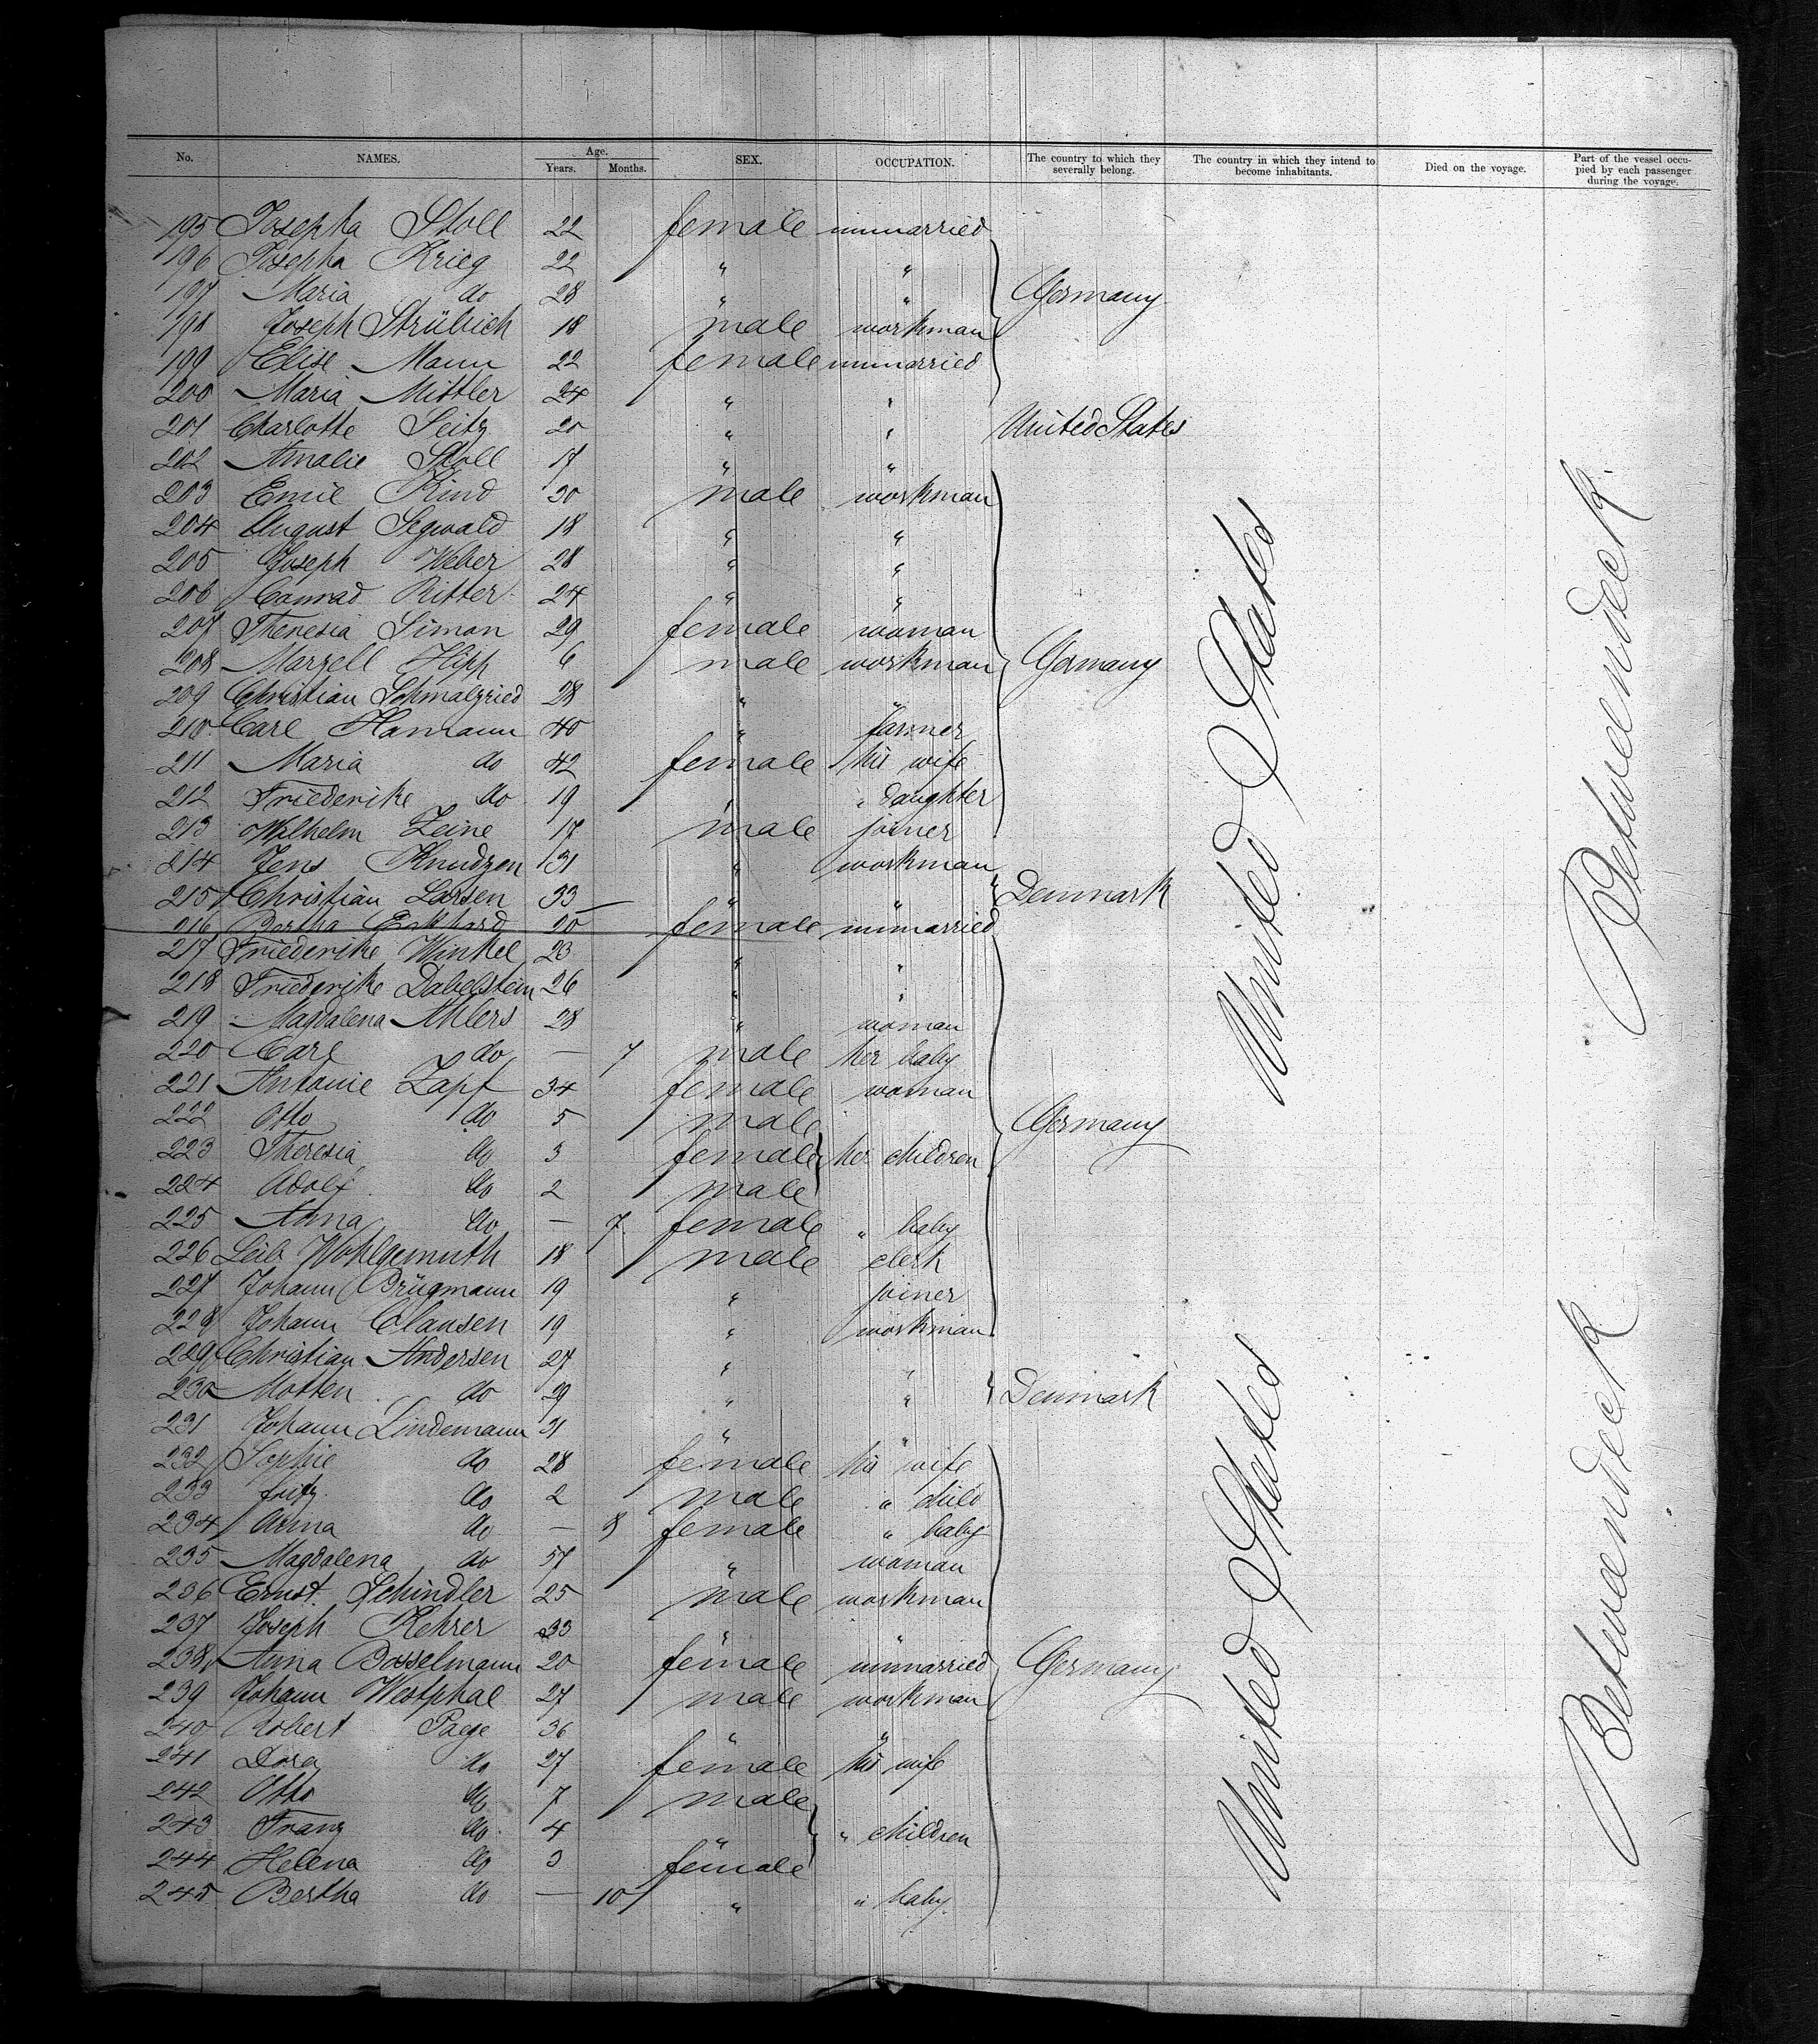 No. NAMES. Age. Years. Months. SEX. OCCUPATION. The country to which they severally belong. The country in which they intend to become inhabitants. Died on the voyage. Part of the vessel occupied by each passenger during the voyage.
195 Josepha Stoll 22 female unmarried
196 Josepha Krieg 22 " "
197 Maria do 28 " " Germany
198 Joseph Strübich 18 male workman
199 Elise Mann 22 female unmarried
200 Maria Mittler 24 " "
201 Charlotte Seitz 20 " " United States
202 Amalie Stoll 17 " "
203 Emil Kind 30 male workman
204 August Segwald 18 " "
205 Joseph Weber 28 " "
206 Conrad Ritter 24 " "
207 Theresia Simon 29 female woman
208 Marzell Hipp 6 male workman Germany
209 Christian Schmalzried 28 " "
210 Carl Hamann 40 " farmer
211 Maria do 42 female his wife
212 Friederike do 19 " " daughter
213 Wilhelm Zeine 17 male joiner
214 Jens Knudzen 31 " workman
215 Christian Larsen 33 " " Denmark
216 Bertha Eckhard 20 female unmarried
217 Friederike Winkel 23 " "
218 Friederike Dabelstein 26 " "
219 Magdalena Ahlers 28 " woman
220 Carl do — 7 male her baby
221 Antonie Zapf 34 female woman
222 Otto do 5 male Germany
223 Theresia do 3 female her children
224 Adolf do 2 male
225 Anna do — 7 female " baby
226 Leib Wohlgemuth 18 male clerk
227 Johann Brügmann 19 " joiner
228 Johann Clausen 19 " workman
229 Christian Andersen 27 " "
230 Motten do 29 " " Denmark
231 Johann Lindemann 31 " "
232 Sophie do 28 female his wife
233 Fritz do 2 male " child
234 Anna do — 8 female " baby
235 Magdalena do 57 " woman
236 Ernst Schindler 25 male workman
237 Joseph Kehrer 33 " "
238 Anna Bosselmann 20 female unmarried Germany
239 Johann Westphal 27 male workman
240 Robert Paege 36 " "
241 Dora do 27 female his wife
242 Otto do 7 male
243 Franz do 4 " " children
244 Helena do 3 female
245 Bertha do — 10 " " baby
United States
United States
Betweendeck
Betweendeck